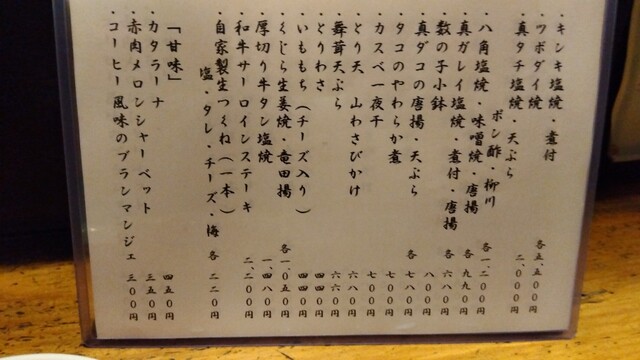 ・キンキ塩焼・煮付　各五、五〇〇円
・ツボダイ焼　二、〇〇〇円
・真タチ塩焼・天ぷら
ポン酢・柳川　各一、二〇〇円
・八角塩焼・味噌焼・唐揚　各九九〇円
・真ガレイ塩焼・煮付・唐揚　各六八〇円
・数の子小鉢　八〇〇円
・真ダコの唐揚・天ぷら　各七八〇円
・タコのやわらか煮　七〇〇円
・カスベ一夜干　七〇〇円
・とり天　山わさびかけ　六八〇円
・舞茸天ぷら　六六〇円
・とりわさ　四四〇円
・いももち（チーズ入り）　四四〇円
・くじら生姜焼・竜田揚　各一、〇五〇円
・厚切り牛タン塩焼　一、四八〇円
・和牛サーロインステーキ　二、二〇〇円
・自家製生つくね（一本）
塩・タレ・チーズ・梅　各二二〇円
「甘味」
・カタラーナ　四五〇円
・赤肉メロンシャーベット　三五〇円
・コーヒー風味のブランマンジェ　三〇〇円